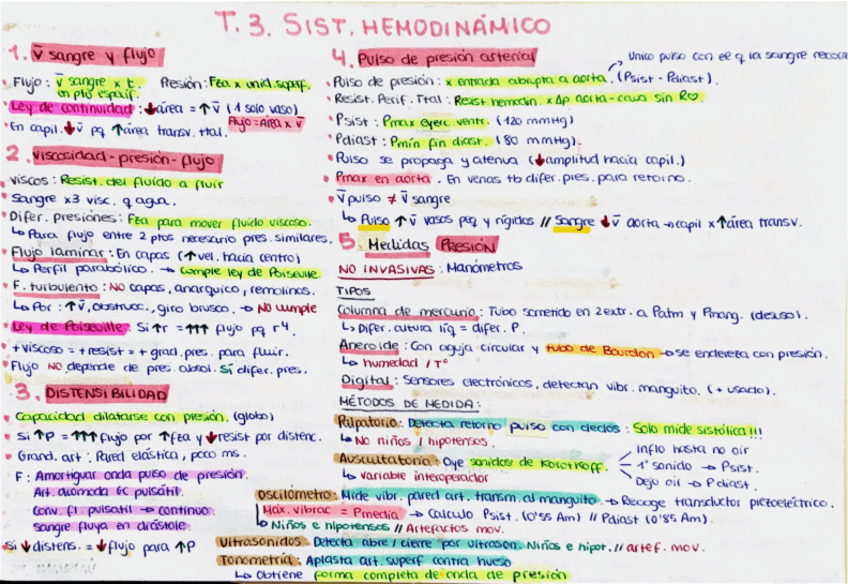 T. 3. SIST. HEMODINÁMICO
1. v̄ sangre y flujo
• Flujo: v̄ sangre x t. en pto espeif. Presión: Fza x unid. superf.
• Ley de continuidad: ↓área = ↑v̄ (1 solo vaso)
Flujo = Área x v̄
• En capil. ↓v̄ pq ↑área transv. ttal.
2. Viscosidad - presión - flujo
• Viscos: Resist. del fluido a fluir
• Sangre x3 visc. q agua.
• Difer. presiones: Fza para mover fluido viscoso.
↳ Para flujo entre 2 ptos necesario pres. similares.
• Flujo laminar: En capas (↑vel. hacia centro)
↳ Perfil parabólico. → cumple ley de Poiseville.
• F. turbulento: NO capas, anárquico, remolinos.
↳ Por: ↑v̄, obstrucc., giro brusco. → NO cumple
• Ley de Poiseville: Si ↑r = ↑↑↑ flujo pq r⁴.
• +viscoso = +resist = + grad. pres. para fluir.
• Flujo NO depende de pres. absol. Sí difer. pres.
3. DISTENSIBILIDAD
• Capacidad dilatarse con presión. (globo)
• Si ↑P = ↑↑↑ flujo por ↑Fza y ↓resist por distenc.
• Grand. art: Pared elástica, poco ms.
F: Amortiguar onda pulso de presión.
Art. acomoda GC pulsátil.
Conv. fl. pulsatil → continuo
sangre fluya en diástole.
Si ↓distens. = ↓flujo para ↑P
4. Pulso de presión arterial
→ Único pulso con el q la sangre recorre
• Pulso de presión: x entrada abrupta a aorta. (Psist - Pdiast).
• Resist. Perif. Ttal: Resist. hemodin. x Δp aorta-cava sin R♡.
• Psist: Pmax eyec. ventr. (120 mmHg)
• Pdiast: Pmín fin diast. (80 mmHg).
• Pulso se propaga y atenua (↓amplitud hacia capil.)
• Pmax en aorta. En venas tb difer. pres. para retorno.
• v̄ pulso ≠ v̄ sangre
↳ Pulso ↑v̄ vasos peq y rígidos // Sangre ↓v̄ aorta→capil x ↑área transv.
5. Medidas PRESIÓN
NO INVASIVAS: Manómetros
TIPOS
Columna de mercurio: Tubo sometido en 2 extr. a Patm y Pmang. (desuso).
↳ Difer. altura líq = difer. P.
Aneroide: Con aguja circular y tubo de Bourdon → se endereza con presión.
↳ humedad / Tº
Digital: Sensores electrónicos, detectan vibr. manguito. (+ usado).
MÉTODOS DE MEDIDA:
Palpatorio: Detecta retorno pulso con dedos: Solo mide sistólica!!!
↳ No niños / hipotensos.
Auscultatorio: Oye sonidos de Korotkoff.
Inflo hasta no oir
1º sonido → Psist.
Dejo oir → Pdiast.
↳ Variable interoperador
Oscilómetro: Mide vibr. pared art. transm. al manguito → Recoge transductor piezoeléctrico.
Máx. vibrac = Pmedia → Calculo Psist. (0'55 Am) // Pdiast (0'85 Am).
↳ Niños e hipotensos // Artefactos mov.
Ultrasonidos: Detecta abre / cierre por ultrason. Niños e hipot. // artef. mov.
Tonometría: Aplasta art. superf contra hueso
↳ Obtiene forma completa de onda de presión